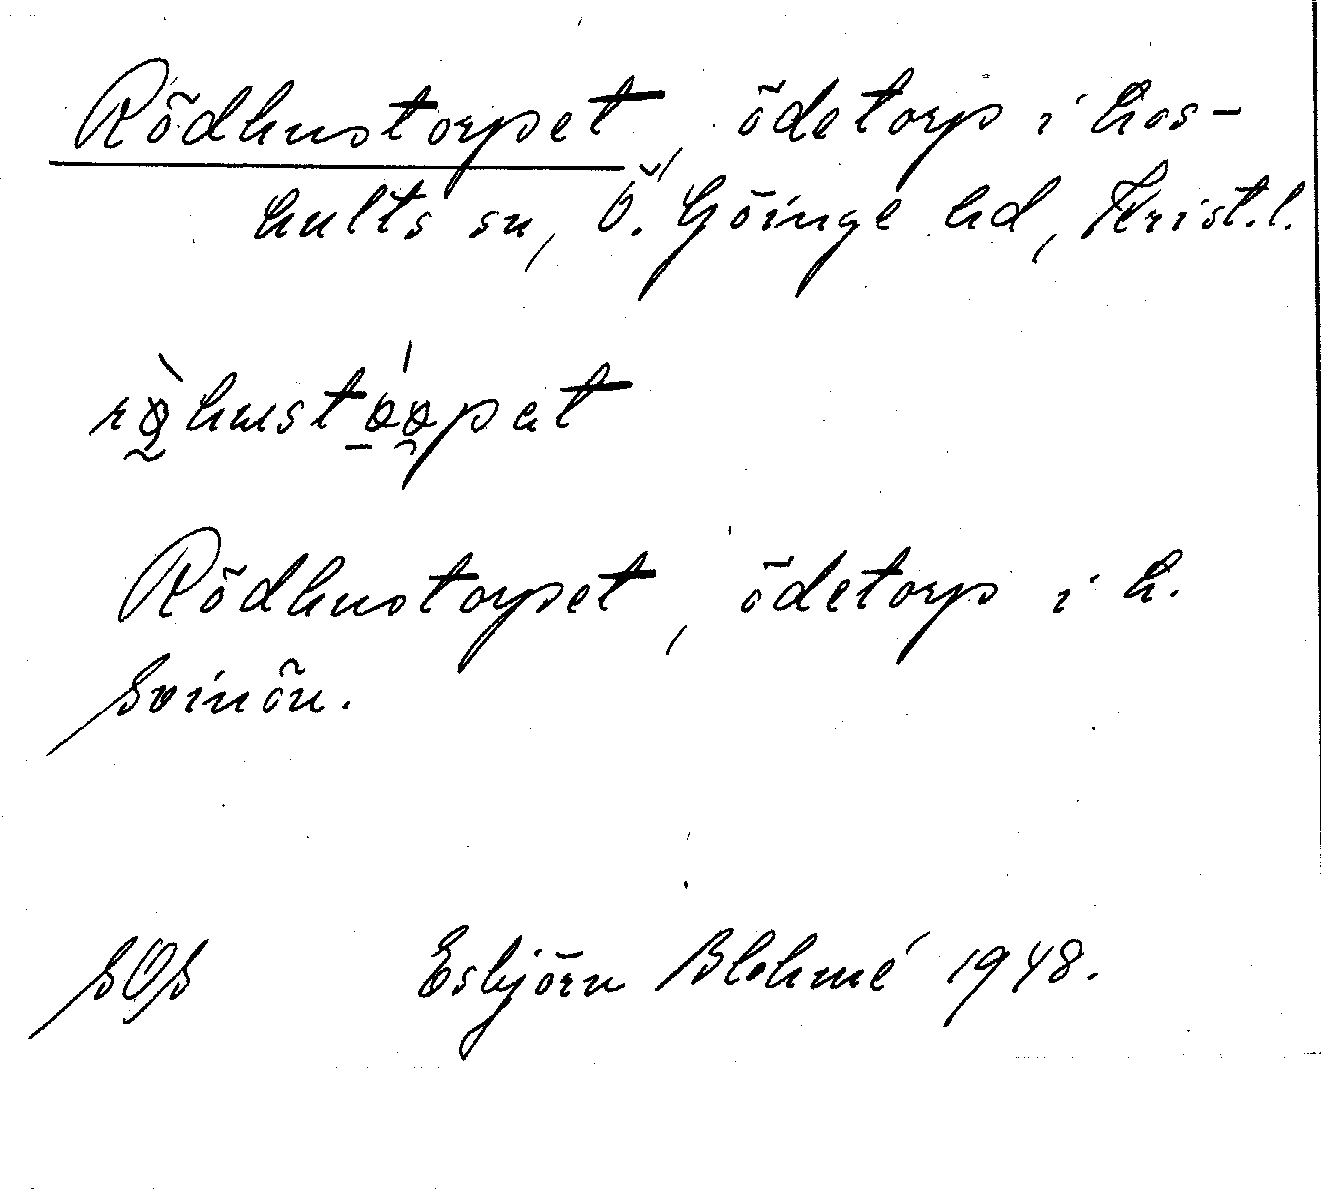 Rödhustorpet, ödetorp i Los-
hults sn, Ö. Göinge hd, Krist.l.
Rödhustorpet, ödetorp i L.
Svinön.
SOS Esbjörn Blohmé 1948.